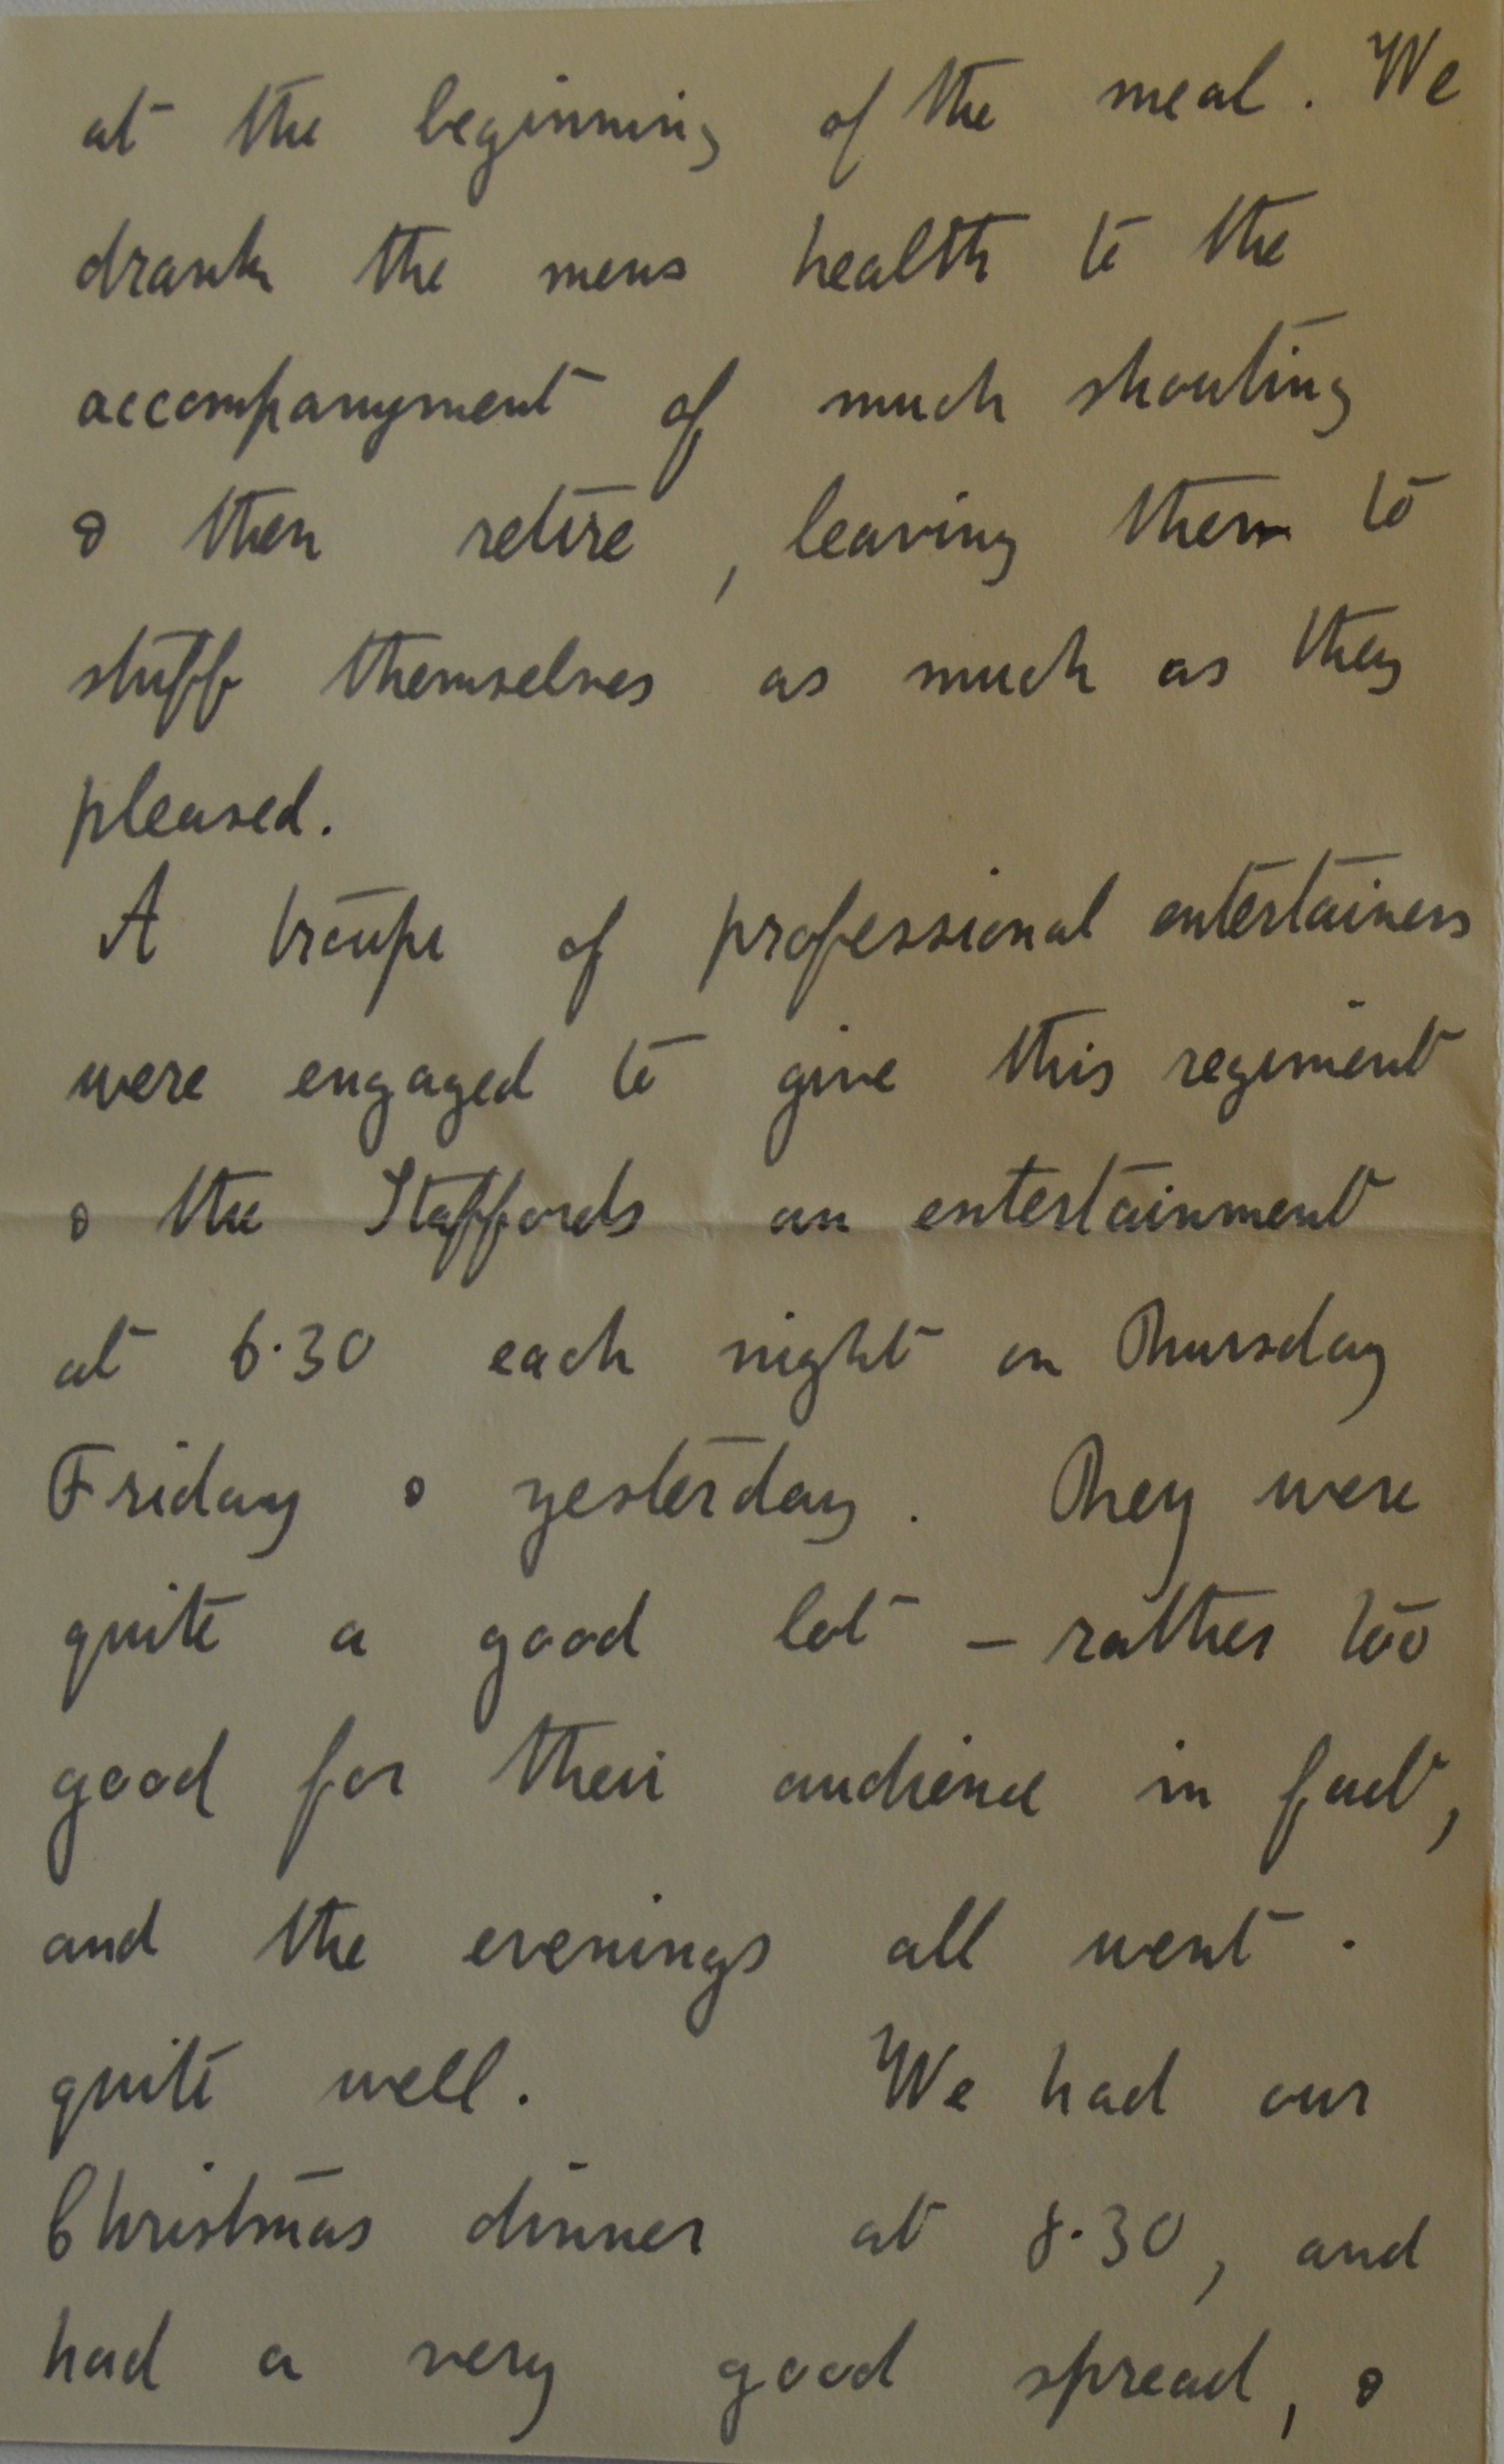 at the beginning of the meal. We
drank the mens health to the
accompanyment of much shouting
& then retire, leaving them to
stuff themselves as much as they
pleased.
A troupe of professional entertainers
were engaged to give this regiment
& the Staffords an entertainment
at 6.30 each night on Thursday
Friday & yesterday. They were
quite a good lot - rather too
good for their audience in fact,
and the evenings all went.
quite well. We had our
Christmas dinner at 8.30, and
had a very good spread, &